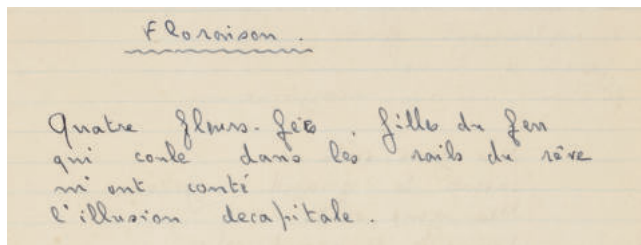 Floraison.
Quatre fleurs-fées, filles du feu
qui coule dans les rails du rêve
m'ont conté
l'illusion decapitale.